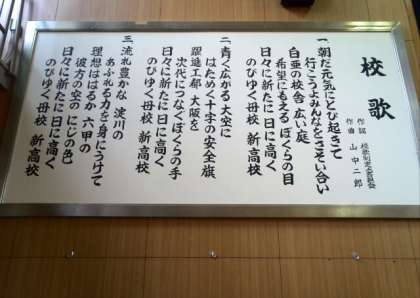 校歌
作詞 校歌制定委員会
作曲 山中二郎
一、朝だ元気にとび起きて
行こうよみんなをさそい合い
白亜の校舎 広い庭
希望にもえる ぼくらの目
日々に新たに 日に高く
のびゆく母校 新高校
二、青く広がる大空に
はためく十字の安全旗
躍進工都 大阪を
次代につなぐぼくらの手
日々に新たに 日に高く
のびゆく母校 新高校
三、流れ豊かな 淀川の
あふれる力を身にうけて
理想ははるか 六甲の
彼方の空の にじの色
日々に新たに 日に高く
のびゆく母校 新高校